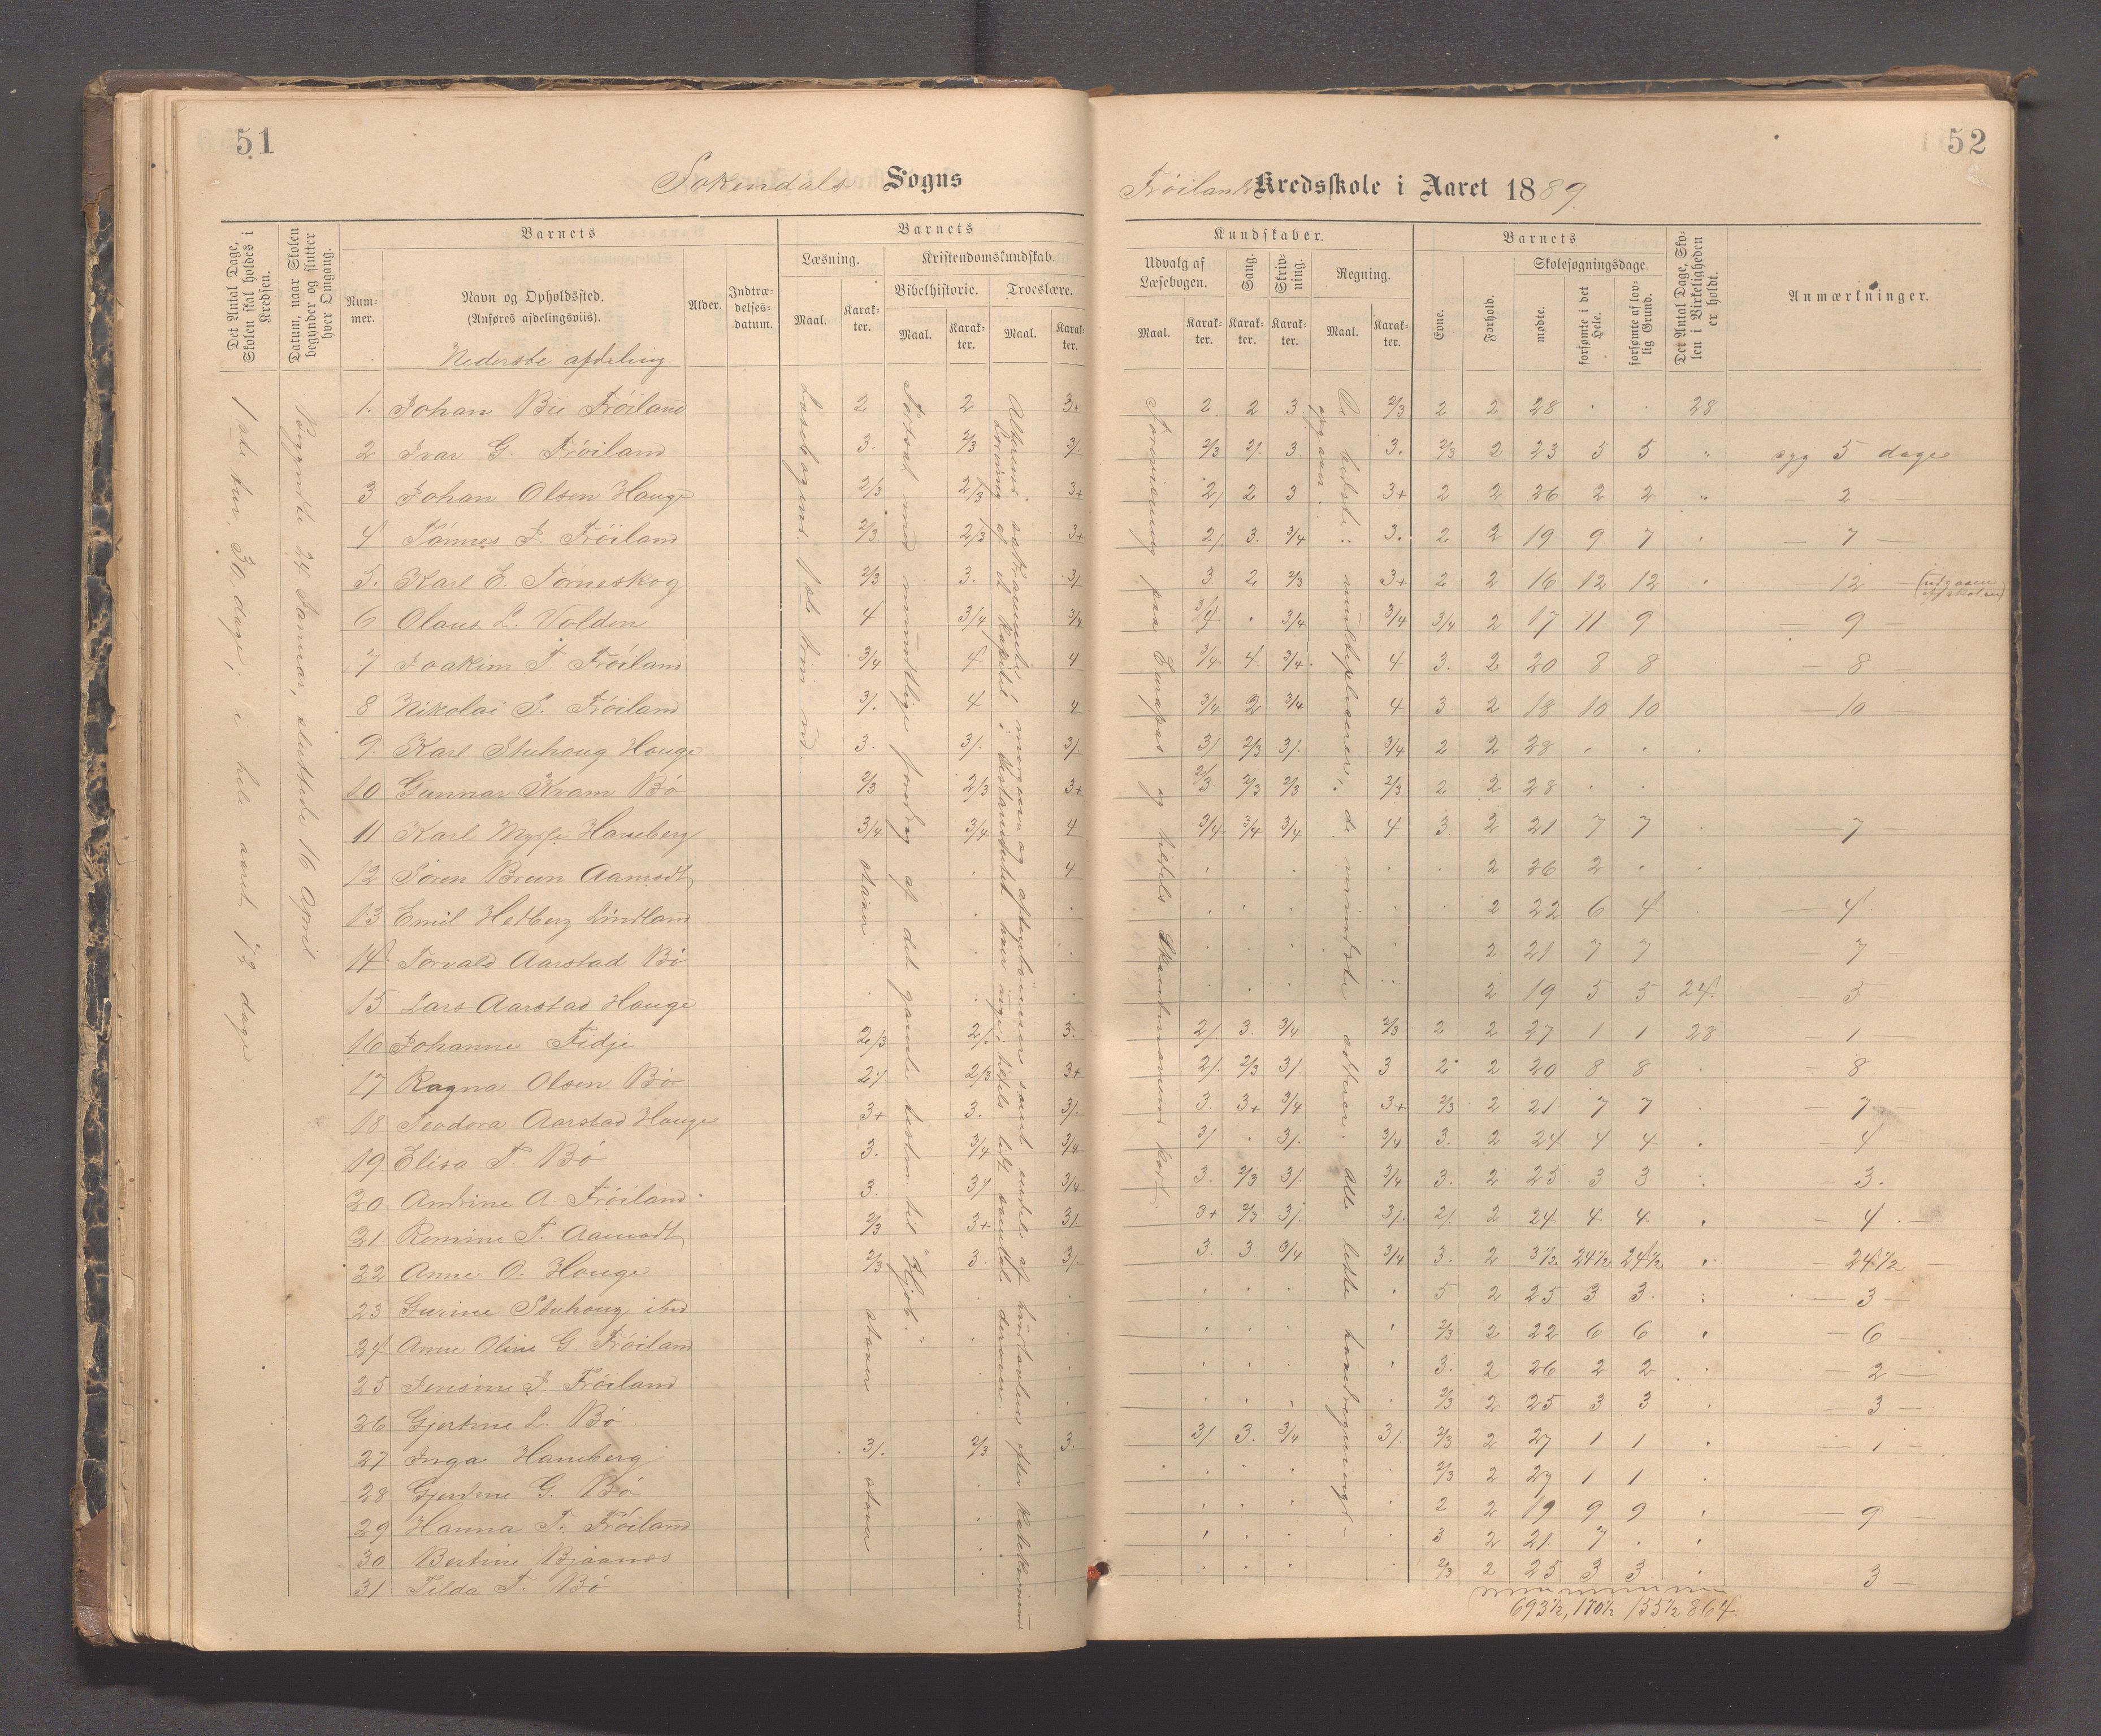 51
52
Sokendals Sogns
Frøilands Kredsskole i Aaret 1889.
Det Antal Dage, Skolen skal holdes i Kredsen.
Datum, naar Skolen begynder og slutter hver Omgang.
Barnets
Num-mer.
Navn og Opholdssted.
(Anføres afdelingsviis).
Nederste afdeling
Alder.
Indtræ-delses-datum.
Barnets
Læsning.
Maal.
Karak-ter.
Kristendomskundskab.
Bibelhistorie.
Maal.
Karak-ter.
Troeslære.
Maal.
Karak-ter.
Kundskaber.
Udvalg af Læsebogen.
Maal.
Karak-ter.
Sang.
Karak-ter.
Skriv-ning.
Karak-ter.
Regning.
Maal.
Karak-ter.
Barnets
Evne.
Forhold.
Skolesøgningsdage.
mødte.
forsømte i det Hele.
forsømte af lov-lig Grund.
Det Antal Dage, Sko-len i Virkeligheden er holdt.
Anmærkninger.
i hele aaret 72 dage
Begyndte 24 Januar, sluttede 16 April
1. Johan Bie Frøiland 2 2 3+ 2. 2 3. 2/3 2 2 28 . . 28
2 Ivar G. Frøiland 3. 2/3 3/. 2/3 2/. 3 3. 2/3 2 23 5 5 " syg 5 dage
3 Johan Olsen Hauge 2/3 2/3 3+ 2/ 2 3 3+ 2 2 26 2 2 " — 2 —
4 Tønnes J. Frøiland 2/3 2/3 3+ 2/. 3. 3/4 3. 2 2 19 9 7 . — 7 —
5. Karl E. Tørneskog 2/3 3. 3/. 3. 2 2/3 3+ 2 2 16 12 12 . — 12 — (udgaaen af skolen)
6 Olaus L. Volden 4 3/4 3/4 3/4 . 3/4 3/4 3/4 2 17 11 9 — 9 —
7 Joakim T. Frøiland 3/4 4 4 3/4. 4 3/4. 4 3. 2 20 8 8 — 8 —
8 Nikolai S. Frøiland 3/. 4 4 3/4 2 3/4 4 3 2 18 10 10 — 10 —
9. Karl Stuhoug Hauge 3. 3/. 3/. 3/ 2/3 3/. 3/4 2 2 28 . . .
10 Gunnar Kvam Bø 2/3 2/3 3+ 2/3 2/3 2/3 2/3 2 2 28 . .
11 Karl Haneberg 3/4 3/4 4 3/4. 3/4 3/4 4 3 2 21 7 7 . — 7 —
12 Søren Bruun Aamodt . 4 . . . . . 2 26 2 . .
13 Emil Hedberg Lindland . . . . . . . 2 22 6 4 . — 4
14 Torvald Aarstad Bø . . . . . . 2 21 7 7 — 7 —
15 Lars Aarstad Hauge . . . . . . . 2 19 5 5 24. — 5 —
16 Johanne Fidje 2/3 2/. 3. 2/. 3. 3/4 2/3 2 2 27 1 1 28 — 1 —
17 Ragna Olsen Bø 2/ 2/3 3+ 2/. 2/3 3/ 3 2 2 20 8 8 . — 8
18 Teodora Aarstad Hauge 3+ 3. 3/. 3. 3+ 3/4 3+ 2/3 2 21 7 7 . — 7 —
19 Elisa T. Bø 3. 3/4 3/4 3/ . 3/. 3/4 3. 2 24 4 4 . — 4
20 Andrine A. Frøiland 3 3/ 3/4 3. 2/3 3/. 3/4 3. 2 25 3 3 . — 3.
21 Romine T. Aamodt 2/3 3+ 3/ 3+ 2/3 3/. 3/. 2/. 2 24 4 4 . — 4 —
22 Anne O. Hauge 2/3 3. 3/. 3. 3. 3/4 3/4 3. 2 3½ 24½ 24½ . — 24½ —
23 Gurine Stuhoug ibd . . . . . . 5 2 25 3 3. . — 3 —
24 Anne Oline G. Frøiland . . . . . . 2/3 2 22 6 6 . — 6 —
25 Jensine J. Frøiland . . . . . 3. 2 26 2 2 . — 2 —
26 Gjertine L. Bø . . . . . . 2/3 2 25 3 3 . — 3 —
27 Inga Haneberg 3/. 2/3 3. 3/. 3. 3/4 3/. 2/3 2 27 1 1 . — 1 —
28 Gjertine G. Bø . . . . . 2/3 2 27 1 1 .
29 Hanna T. Frøiland . . . . . 2 2 19 9 9 . — 9
30 Bertine Bjaanes . . . . . 3 2 21. 7 . .
31 Tilda T. Bø . . . . 2/3 2 25 3 3. . — 3 —
693½, 170½ 155½ 864.
Læsebogens 1ste trin ud.
staver
staver
staver
Fortsat med mundtlige foredrag af det gamle testm. til "Hjob."
Forevisning paa Europas og helst Skandinaviens kort.
De bedste: multiplicere; de mindste addere. Alle lidt hovedregning.
opgaver.